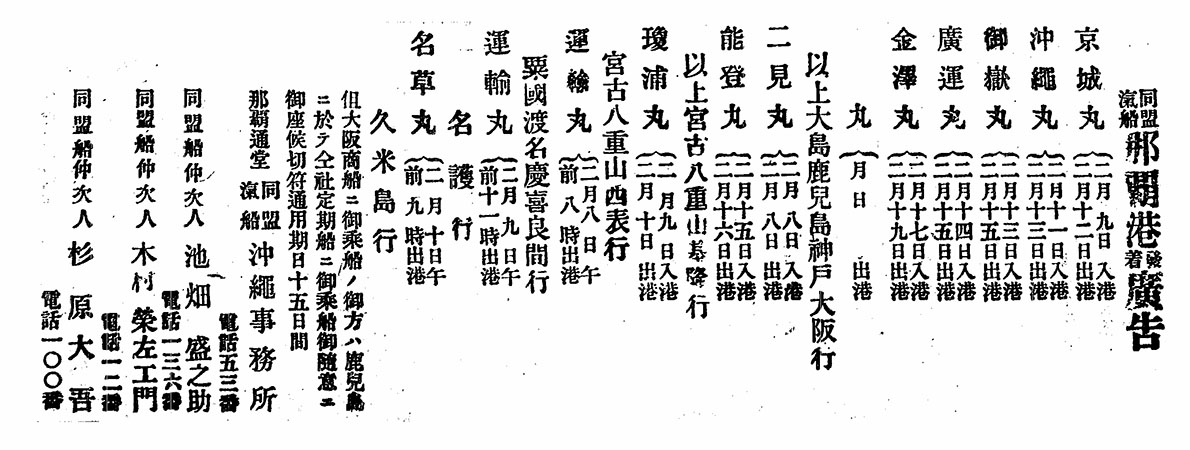 同盟汽船那覇港發着廣告
京城丸 二月九日入港 二月十二日出港
沖繩丸 二月十一日入港 二月十三日出港
御嶽丸 二月十三日入港 二月十五日出港
廣運丸 二月十四日入港 二月十五日出港
金澤丸 二月十七日入港 二月十九日出港
丸 月日 出港
以上大島鹿兒島神戸大阪行
二見丸 二月八日入港 二月八日出港
能登丸 二月十五日入港 二月十六日出港
以上宮古八重山基隆行
瓊浦丸 二月九日入港 二月十日出港
宮古八重山西表行
運輸丸 二月八日午前八時出港
粟國渡名慶喜良間行
運輸丸 二月九日午前十一時出港
名護行
名草丸 二月十日午前九時出港
久米島行
但大阪商船ニ御乘船ノ御方ハ鹿兒島
ニ於テ仝社定期船ニ御乘船御随意ニ
御座候切符通用期日十五日間
那覇通堂 同盟汽船 沖繩事務所
電話五三番
同盟船仲次人 池畑盛之助
電話一三六番
同盟船仲次人 木村榮左工門
電話一二番
同盟船仲次人 杉原大吾
電話一〇〇番